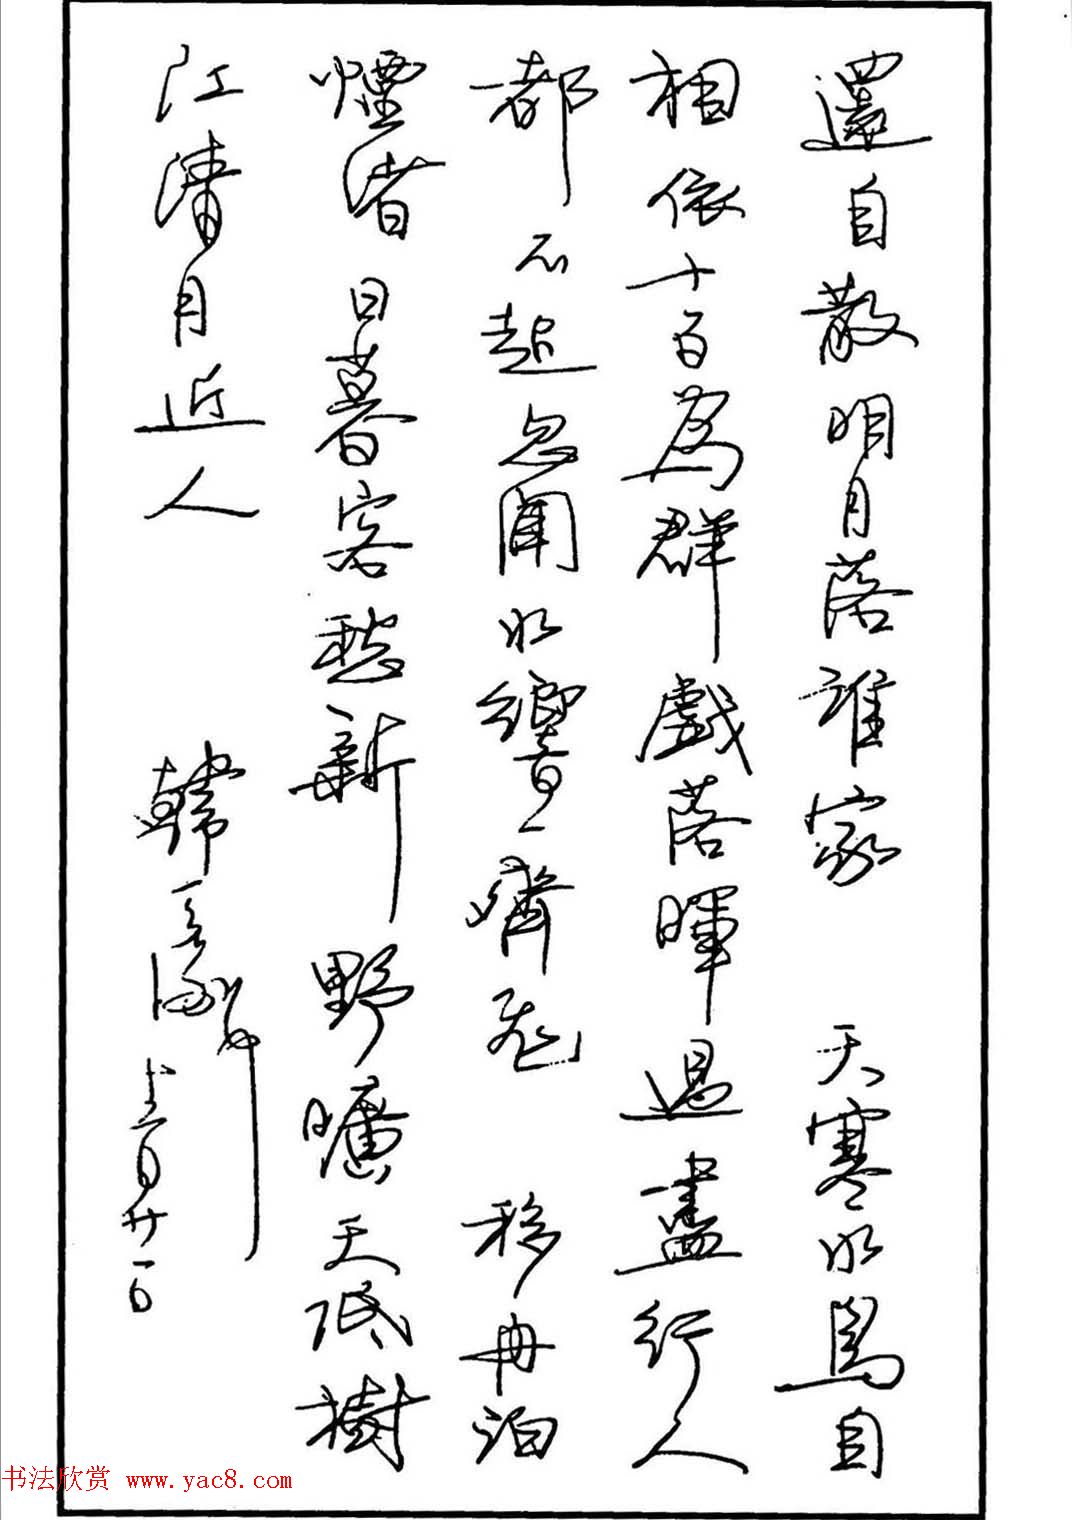 還自散明月落誰家 天寒水鳥自
相依十百為群戲落暉過盡行人
都不起忽聞水響一齊飛 移舟泊
煙渚日暮客愁新野曠天低樹
江清月近人 韓 月廿一日
书法欣赏 www.yac8.com